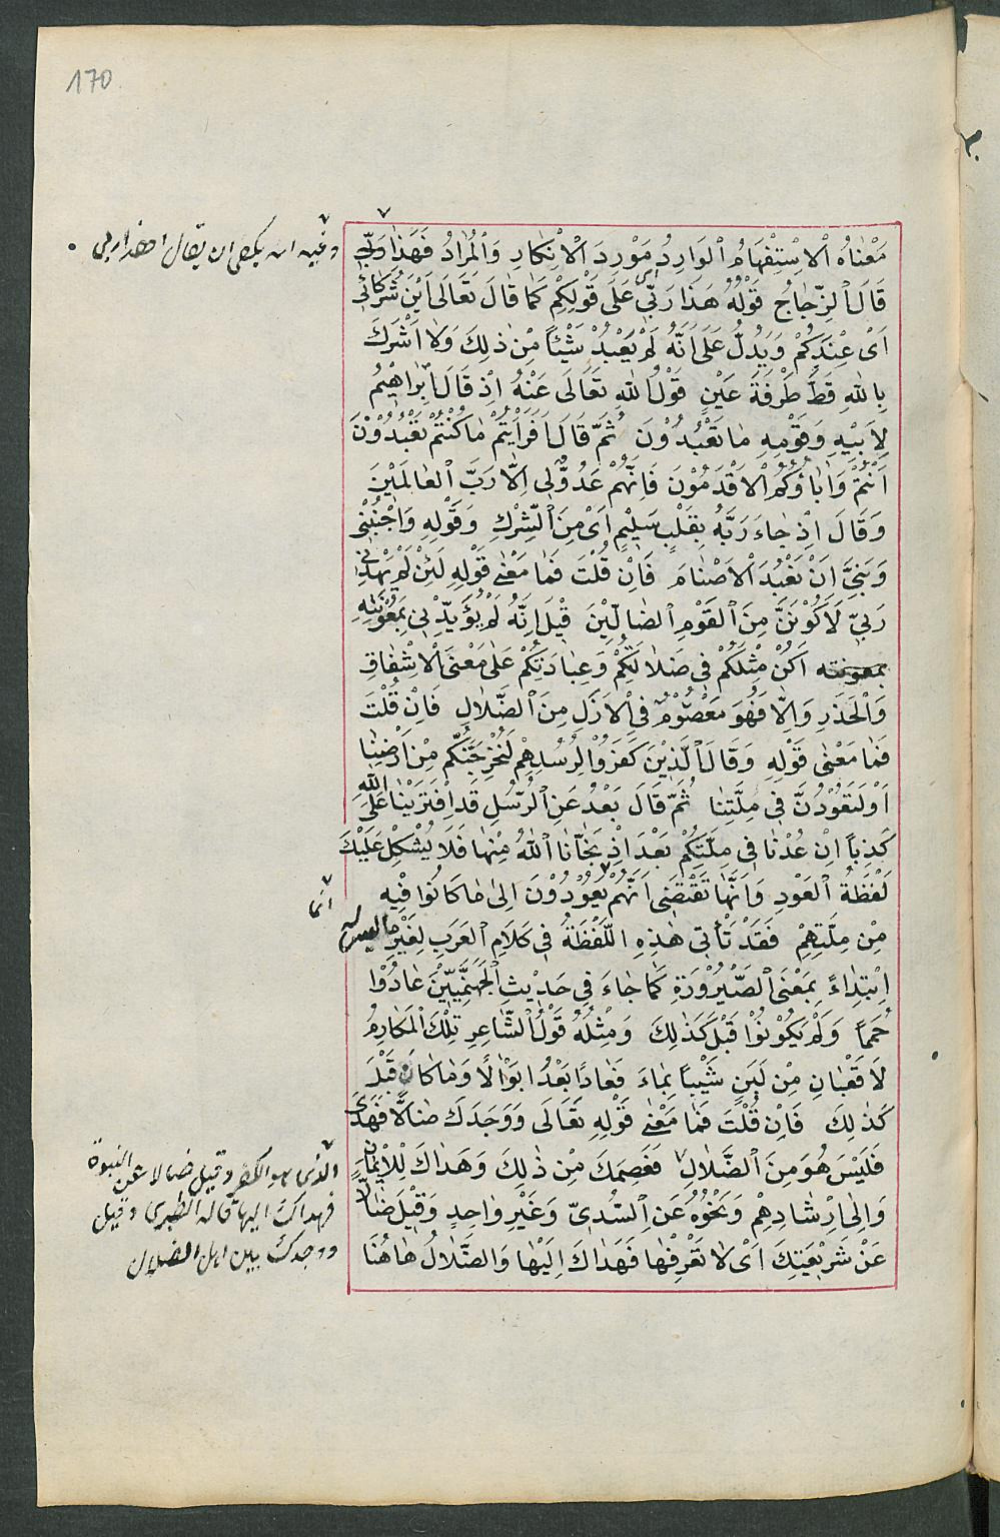 170
مَعْنَاهُ الْاِسْتِفْهَامُ الْوَارِدُ مَوْرِدَ الْاِنْكَارِ وَالْمُرَادُ فَهَذَا رَبِّي
قَالَ الزَّجَاجُ قَوْلُهُ هَذَا رَبِّي اى عَلَى قَوْلِكُمْ كَمَا قَالَ تَعَالَى اَيْنَ شُرَكَائِي
اَىْ عِنْدَكُمْ وَيَدُلُّ عَلَى اَنَّهُ لَمْ يَعْبُدْ شَيْئًا مِنْ ذٰلِكَ وَلَا اَشْرَكَ
بِاللّٰهِ قَطُّ طَرْفَةَ عَيْنٍ قَوْلُ اللّٰهِ تَعَالَى عَنْهُ اِذْ قَالَ اِبْرَاهِيْمُ
لِاَبِيْهِ وَقَوْمِهِ مَا تَعْبُدُوْنَ ثُمَّ قَالَ اَفَرَاَيْتُمْ مَا كُنْتُمْ تَعْبُدُوْنَ
اَنْتُمْ وَاٰبَاؤُكُمُ الْاَقْدَمُوْنَ فَاِنَّهُمْ عَدُوٌّ لِى اِلَّا رَبَّ الْعَالَمِيْنَ
وَقَالَ اِذْ جَاءَ رَبَّهُ بِقَلْبٍ سَلِيْمٍ اَىْ مِنَ الشِّرْكِ وَقَوْلِهِ وَاجْنُبْنِى
وَبَنِىَّ اَنْ نَعْبُدَ الْاَصْنَامَ فَاِنْ قُلْتَ فَمَا مَعْنٰى قَوْلِهِ لَئِنْ لَمْ يَهْدِنِى
رَبِّي لَاَكُوْنَنَّ مِنَ الْقَوْمِ الضَّالِّيْنَ قِيْلَ اِنَّهُ لَمْ يُؤَيِّدْنِى بِمَعُوْنَتِهِ
بمعونته اَكُنْ مِثْلَكُمْ فِى ضَلَالَتِكُمْ وَعِبَادَتِكُمْ عَلَى مَعْنَى الْاِشْفَاقِ
وَالْحَذَرِ وَاِلَّا فَهُوَ مَعْصُوْمٌ فِى الْاَزَلِ مِنَ الضَّلَالِ فَاِنْ قُلْتَ
فَمَا مَعْنٰى قَوْلِهِ وَقَالَ الَّذِيْنَ كَفَرُوْا لِرُسُلِهِمْ لَنُخْرِجَنَّكُمْ مِنْ اَرْضِنَا
اَوْ لَتَعُوْدُنَّ فِى مِلَّتِنَا ثُمَّ قَالَ بَعْدُ عَنِ الرُّسُلِ قَدِ افْتَرَيْنَا عَلَى اللّٰهِ
كَذِبًا اِنْ عُدْنَا فِى مِلَّتِكُمْ بَعْدَ اِذْ نَجَّانَا اللّٰهُ مِنْهَا فَلَا يُشْكِلْ عَلَيْكَ
لَفْظَةُ الْعَوْدِ وَاَنَّهَا تَقْتَضِى اَنَّهُمْ يَعُوْدُوْنَ اِلَى مَا كَانُوا فِيْهِ
مِنْ مِلَّتِهِمْ فَقَدْ تَأْتِى هٰذِهِ اللَّفْظَةُ فِى كَلَامِ الْعَرَبِ لِغَيْرِ ما ليس له
اِبْتِدَاءٌ بِمَعْنَى الصَّيْرُوْرَةِ كَمَا جَاءَ فِى حَدِيْثِ الْجَهَنَّمِيِّيْنَ عَادُوْا
حُمَمًا وَلَمْ يَكُوْنُوْا قَبْلُ كَذٰلِكَ وَمِثْلُهُ قَوْلُ الشَّاعِرِ تِلْكَ الْمَكَارِمُ
لَا قَعْبَانِ مِنْ لَبَنٍ شَيْبًا بِمَاءٍ فَعَادَا بَعْدُ اَبْوَالًا وَمَا كَانَ قَبْلُ
كَذٰلِكَ فَاِنْ قُلْتَ فَمَا مَعْنٰى قَوْلِهِ تَعَالَى وَوَجَدَكَ ضَالًّا فَهَدَى
فَلَيْسَ هُوَ مِنَ الضَّلَالِ فَعَصِمَكَ مِنْ ذٰلِكَ وَهَدَاكَ لِلْاِيْمَانِ
وَاِلَى اِرْشَادِهِمْ وَنَحْوُهُ عَنِ السُّدِىِّ وَغَيْرِ وَاحِدٍ وَقِيْلَ ضَالًّا
عَنْ شَرِيْعَتِكَ اَىْ لَا تَعْرِفُهَا فَهَدَاكَ اِلَيْهَا وَالضَّلَالُ هَاهُنَا
انما
الذى هو الكفر وقيل ضالا عن النبوة
فهداك اليها قاله الطبرى وقيل
ووجدك بين اهل الضلال